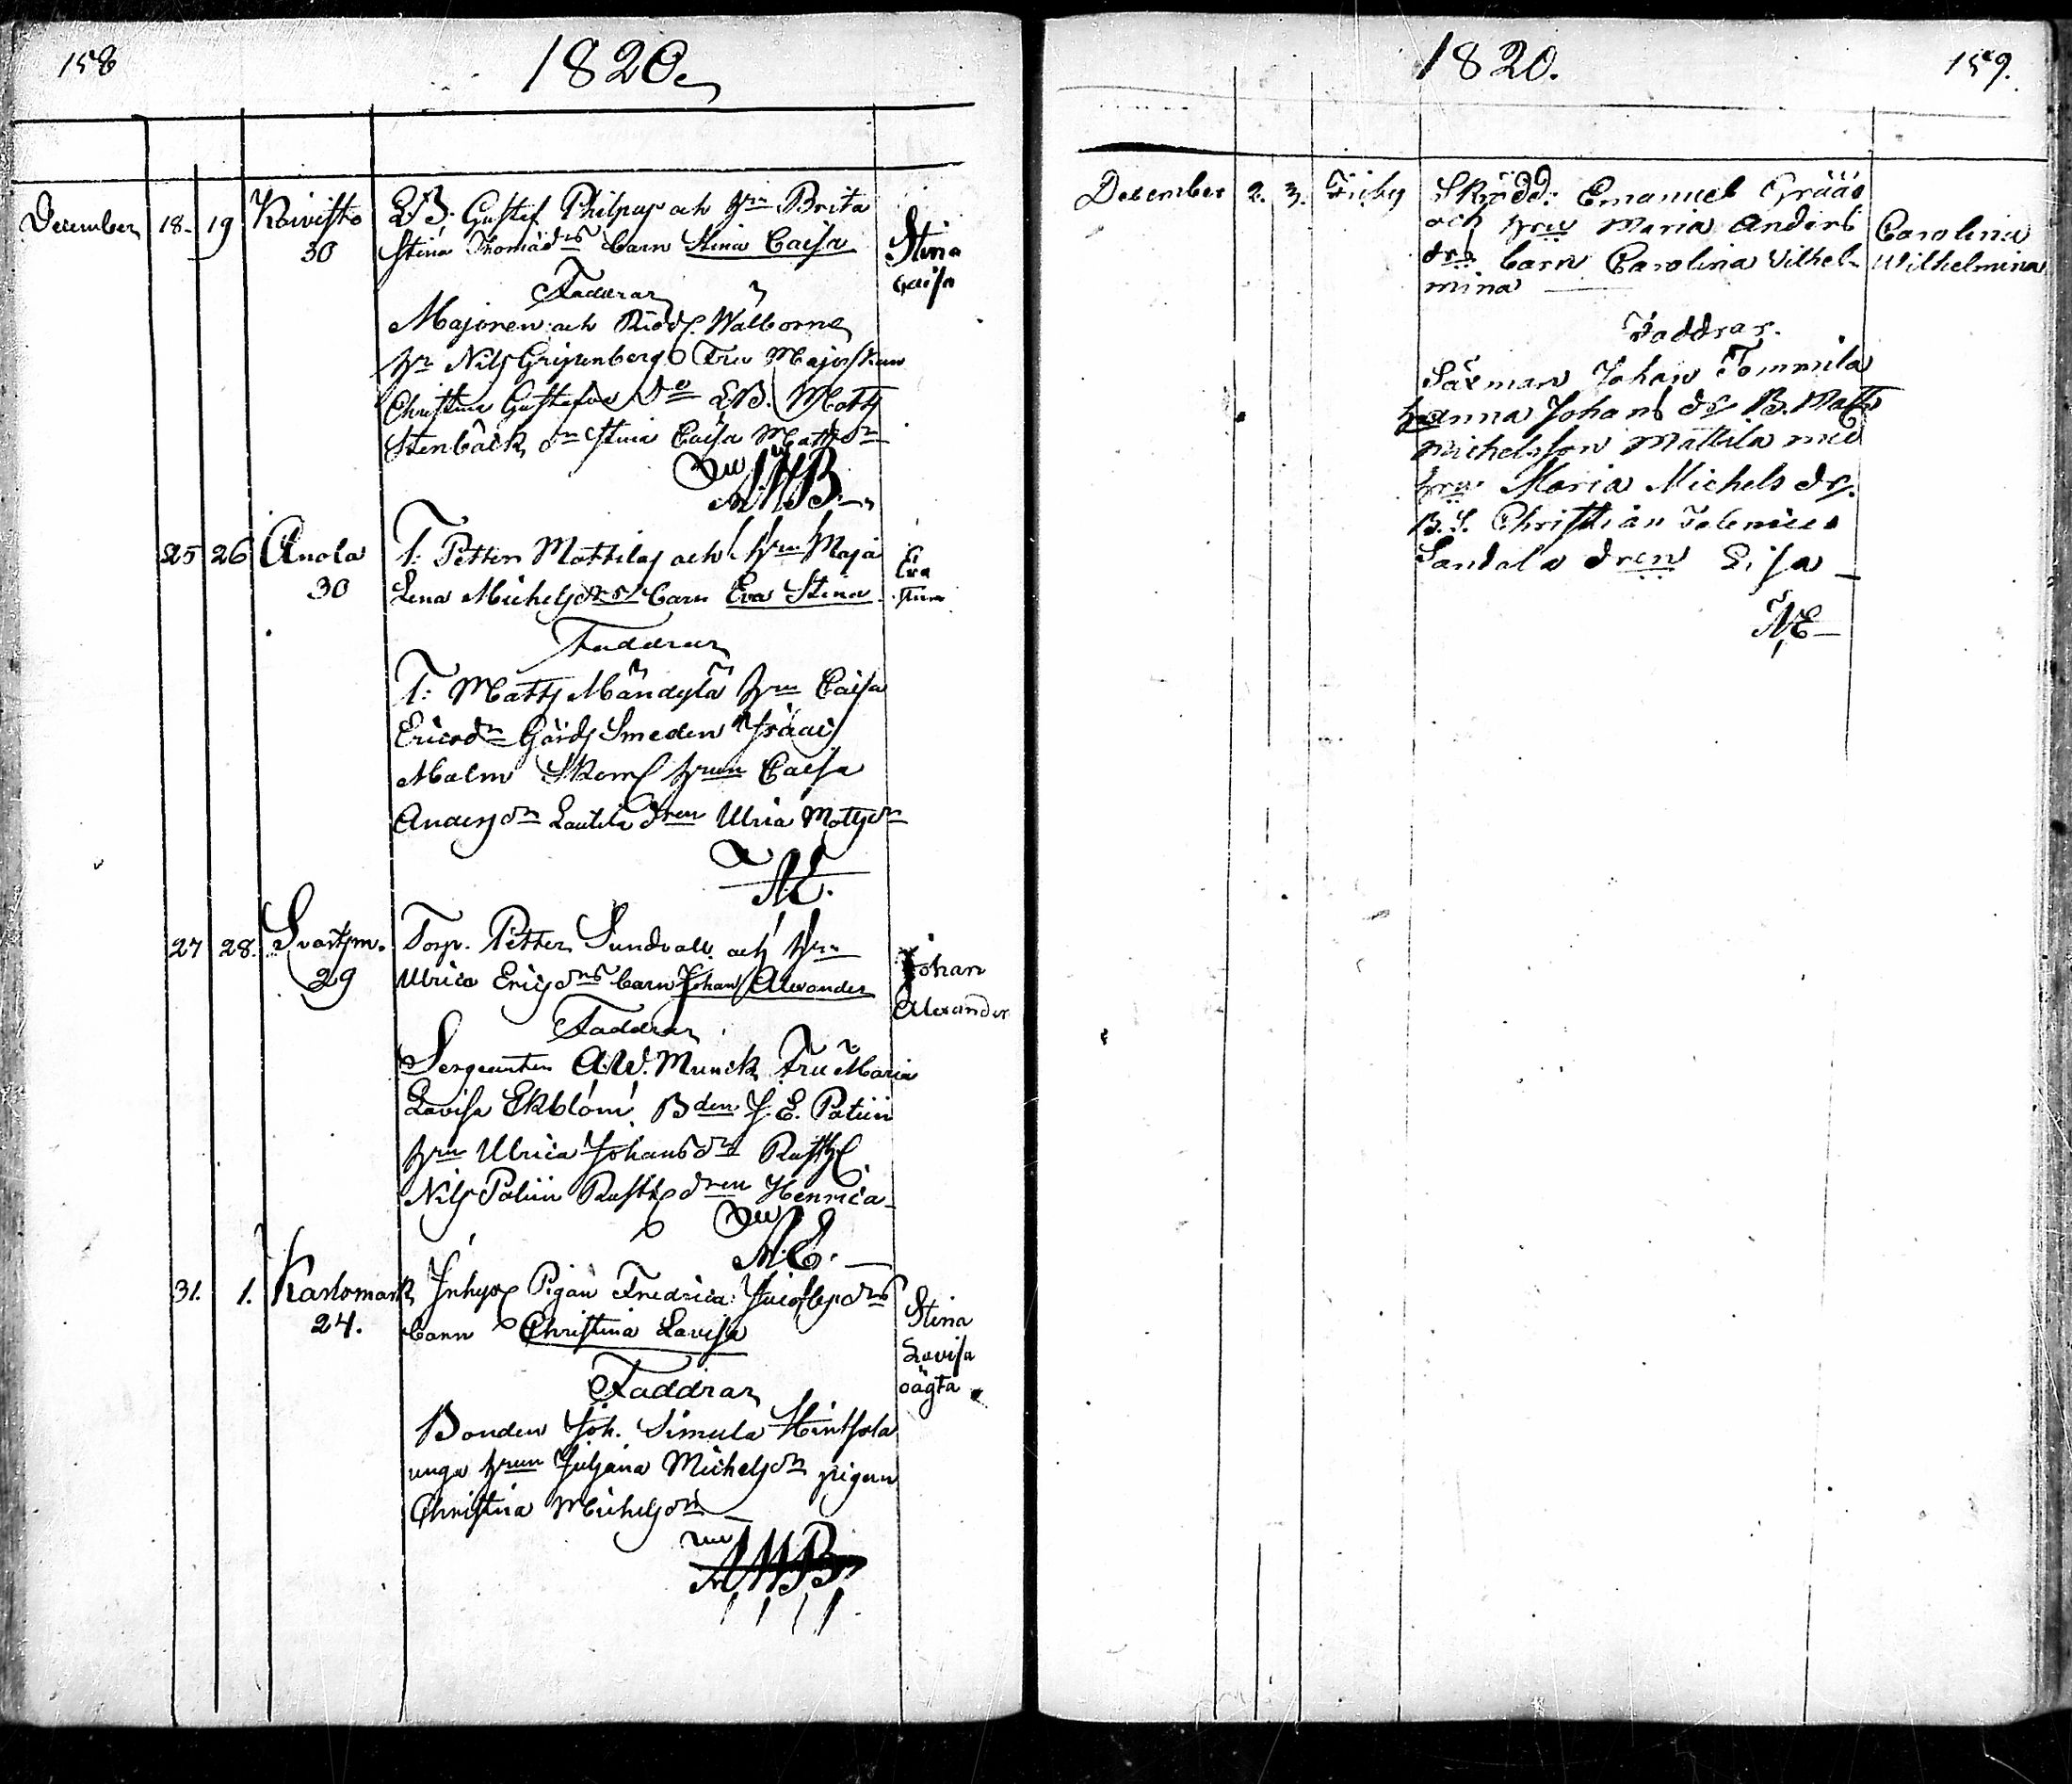 158
1820.
December 18. 19 Koivisto LB. Gustef Philpus och hu Brita
30 Stina Thomædrs barn Stina Caisa
Stina
Caisa
Faddrar
Majoren och Ridd. Wälborne
hr Nils Gripenberg Fru Majorskan
Christina Gustafva do LB. Matts
Stenbäck dn Stina Caisa Mattsdn
AWB.
25 26 Anola T: Petter Mattilas och hru Maja
30 Lena Michelsdrs barn Eva Stina
Eva
Stina
Faddrar
T: Matts Mändylä hru Caisa
Ericsdn Gårds Smeden Isaac
Malm hrun Caisa
Andersdn Lautila dren Ulrica Mattsdn
N.E.
27 28. Svartsm. Torp. Petter Sundvall och hru
29 Ulrica Ericsdrs barn Johan Alexander
Johan
Alexander
Faddrar
Sergeanten A.W. Munck Fru Maria
Lovisa Ekblom Bden J. E.
hru Ulrica Johansdn Rusth.
Nils Rusth. dren Henrica
N.E.
31. 1. Karlsmark Inhys. Pigan Fredrica
24. barn Christina Lovisa
Stina
Lovisa
oägta
Faddrar
Bonden Joh. Simula
unga hrun Juljana Michelsdn pigan
Christina Michelsdn
AWB
1820.
159.
December 2. 3. Skrädd: Emanuel Grääs
och hru Maria Anders
drs barn Carolina Vilhel-
mina
Carolina
Wilhelmina
Faddrar.
Säxman Johan Tommila
Anna Johans dr. B. Matts
Michelsson Mattila med
hru Maria Michels dr.
B.S. Christian
Sandala dren Lisa
NE